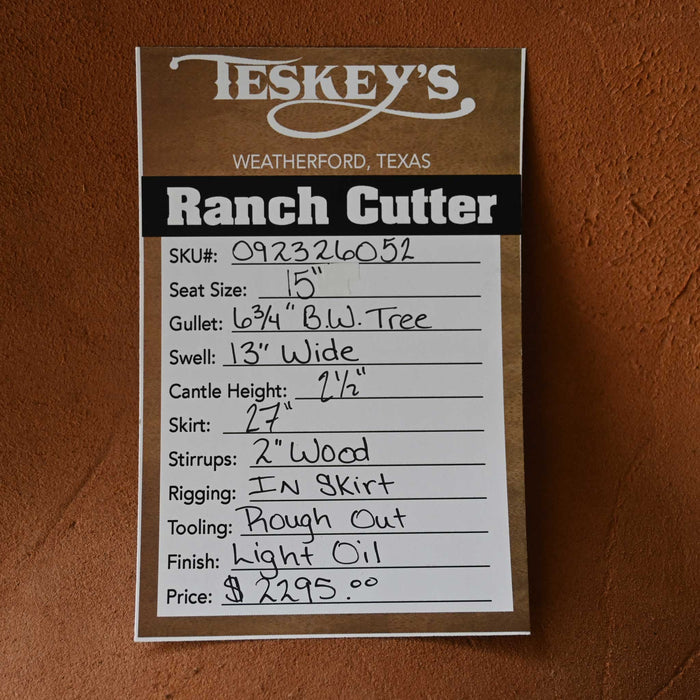 TESKEY'S
WEATHERFORD, TEXAS
Ranch Cutter
SKU#: 092326052
Seat Size: 15"
Gullet: 6 3/4" B.W. Tree
Swell: 13" Wide
Cantle Height: 2 1/2"
Skirt: 27"
Stirrups: 2" Wood
Rigging: IN SKirt
Tooling: Rough Out
Finish: Light Oil
Price: $ 2295.00